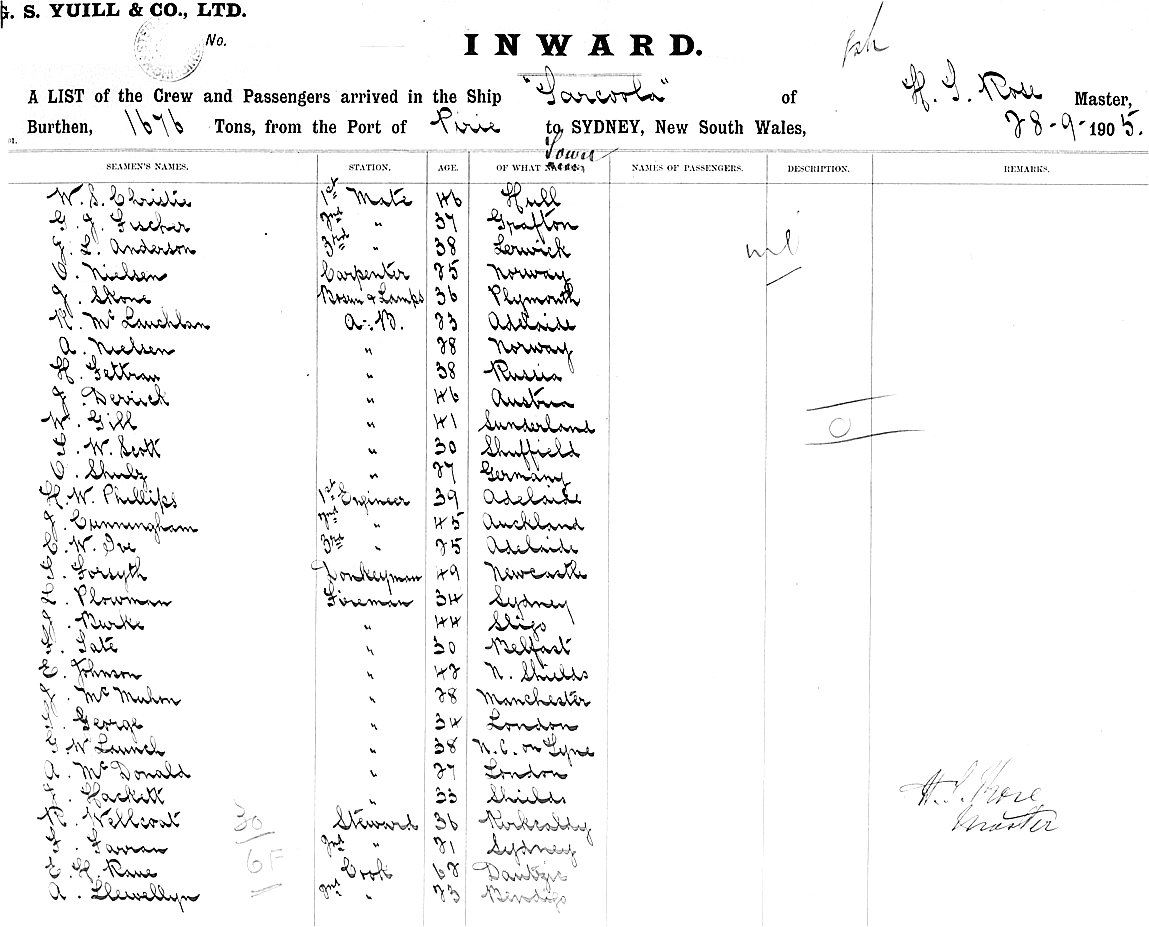 G. S. YUILL & CO., LTD.
No.
INWARD.
A LIST of the Crew and Passengers arrived in the Ship "Tarcoola" of H. S. Rose Master,
Burthen, 1676 Tons, from the Port of Pirie to SYDNEY, New South Wales, 28-9-1905.
SEAMEN'S NAMES. STATION. AGE. OF WHAT Town NAMES OF PASSENGERS. DESCRIPTION. REMARKS.
W. S. Christie 1st Mate 46 Hull
G. J. Fischer 2nd " 37 Grafton
L. Anderson 3rd " 38 Lerwick
C. Nielsen Carpenter 25 Norway
nil
Skone Bosun & Lamps 36 Plymouth
R. McLauchlan A.B. 23 Adelaide
A. Nielsen " 28 Norway
H. " 38 Russia
J. Derrick " 46 Austria
W. Gill " 41 Sunderland
C. W. Scott " 30 Shuffield
C. Shulz " 27 Germany
H. W. Phillips 1st Engineer 39 Adelaide
Cunningham 2nd " 45 Auckland
W. Ive 3rd " 25 Adelaide
Forsyth Donkeyman 49 Newcastle
Plowman Fireman 34 Sydney
Burke " 44 Sligo
Tate " 30 Belfast
Johnson " 42 N. Shields
McMahon " 28 Manchester
George " 34 London
W Launch " 38 N.C. on Tyne
A. McDonald " 27 London
Hackett " 33 Shields
H. S. Rose
Master
Wellcoat 30 Steward 36 Kirkcaldy
Farran 2nd " 21 Sydney
6F
E. H. Rane Cook 62 Dantzic
A. Llewellyn 2nd " 23 Bendigo